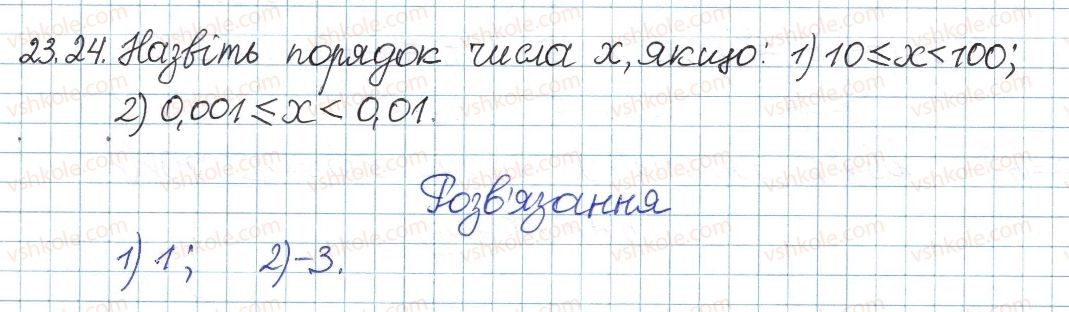 23.24. Назвіть порядок числа x, якщо: 1) 10 ≤ x < 100;
2) 0,001 ≤ x < 0,01.
Розв'язання
1) 1; 2) -3.